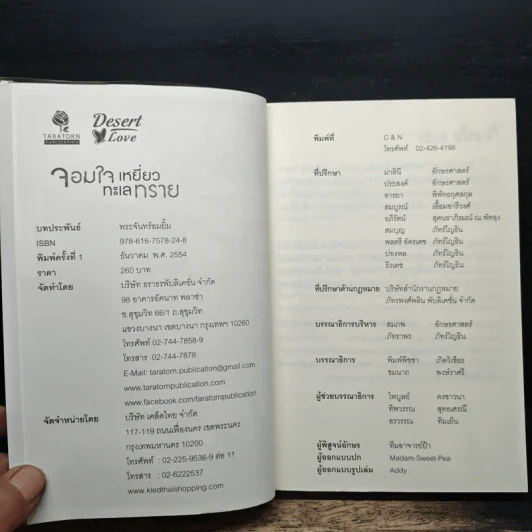 TARATORN
PUBLICATION
Desert
Love
จอมใจเหยี่ยว
ทะเลทราย
บทประพันธ์ พระจันทร์อมยิ้ม
ISBN 978-616-7578-24-8
พิมพ์ครั้งที่ 1 ธันวาคม พ.ศ. 2554
ราคา 260 บาท
จัดทำโดย บริษัท ธราธรพับลิเคชั่น จำกัด
98 อาคารอัคนาท พลาซ่า
ซ.สุขุมวิท 66/1 ถ.สุขุมวิท
แขวงบางนา เขตบางนา กรุงเทพฯ 10260
โทรศัพท์ 02-744-7858-9
โทรสาร 02-744-7878
E-Mail: taratorn.publication@gmail.com
www.taratornpublication.com
www.facebook.com/taratornpublication
จัดจำหน่ายโดย บริษัท เคล็ดไทย จำกัด
117-119 ถนนเฟื่องนคร เขตพระนคร
กรุงเทพมหานคร 10200
โทรศัพท์ : 02-225-9536-9 ต่อ 11
โทรสาร : 02-6222537
www.kledthaishopping.com
พิมพ์ที่ C & N
โทรศัพท์ 02-426-4198
ที่ปรึกษา มาลินี อักษรศาสตร์
ประสงค์ อักษรศาสตร์
อารยา พิพัทธกุศลกุล
สมบูรณ์ เอื้อมอารีวงศ์
อภิรัตน์ สุคนธาภิรมณ์ ณ พัทลุง
สมบุญ ภัทร์โญธิน
พสศรี อัครเดช ภัทร์โญธิน
ปองพล ภัทร์โญธิน
ธีรเดช ภัทร์โญธิน
ที่ปรึกษาด้านกฎหมาย บริษัทสำนักงานกฎหมาย
ภัทรพงศ์พลิน พับลิเคชั่น จำกัด
บรรณาธิการบริหาร สมภพ อักษรศาสตร์
ภัทราพร ภัทร์โญธิน
บรรณาธิการ พิมพ์พิชชา เกิดวิเชียร
ชมนาถ พงษ์ราศรี
ผู้ช่วยบรรณาธิการ ไพบูลย์ คงชาวนา
ทิพวรรณ สุทธเศรณี
อรวรรณ ทิมเย็น
ผู้พิสูจน์อักษร ทีมอาจารย์ป้า
ผู้ออกแบบปก Madam-Sweet-Pea
ผู้ออกแบบรูปเล่ม Addy